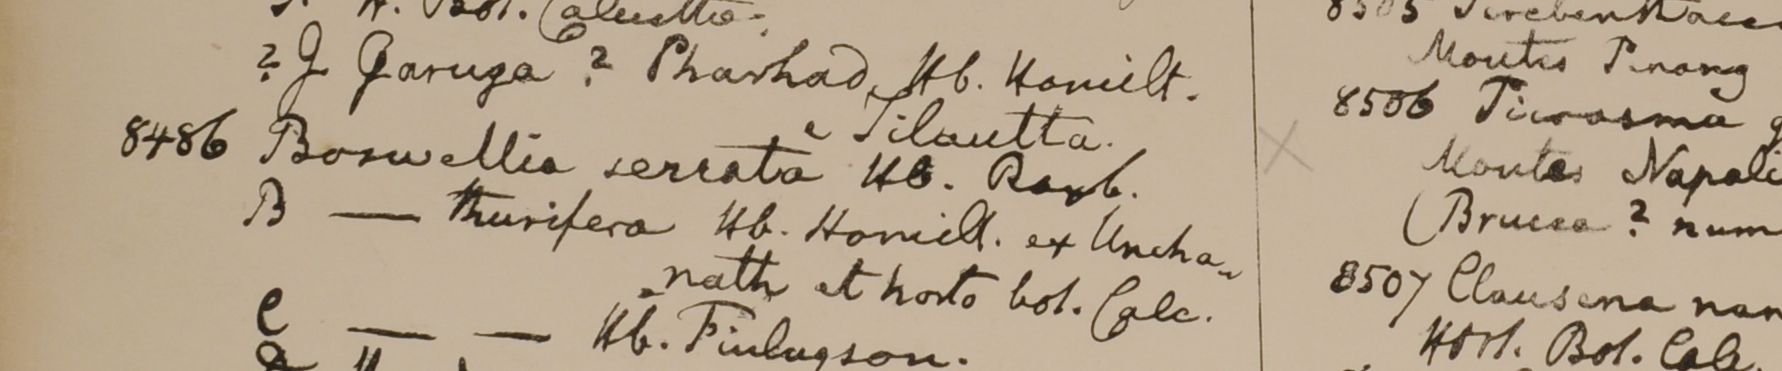 H. Bot. Calcutta.
? J Garuga ? Pharhad, Hb. Hamilt.
e Silautta.
8486 Boswellia serrata Hb. Roxb.
B — thurifera Hb. Hamilt. ex Uncha-
nath et horto bot. Calc.
C — — Hb. Finlayson.
8505
Montes Pinang
8506 Picrasma
Montes Napali
(Brucea ? num
8507 Clausena nan
Hort. Bot. Calc.